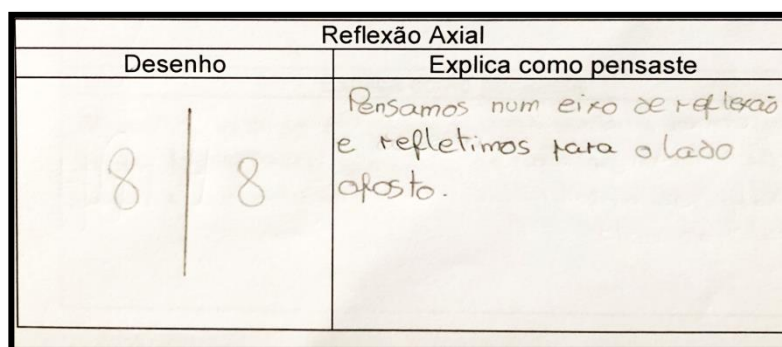 Reflexão Axial
Desenho
Explica como pensaste
8 8
Pensamos num eixo de reflexão
e refletimos para o lado
oposto.